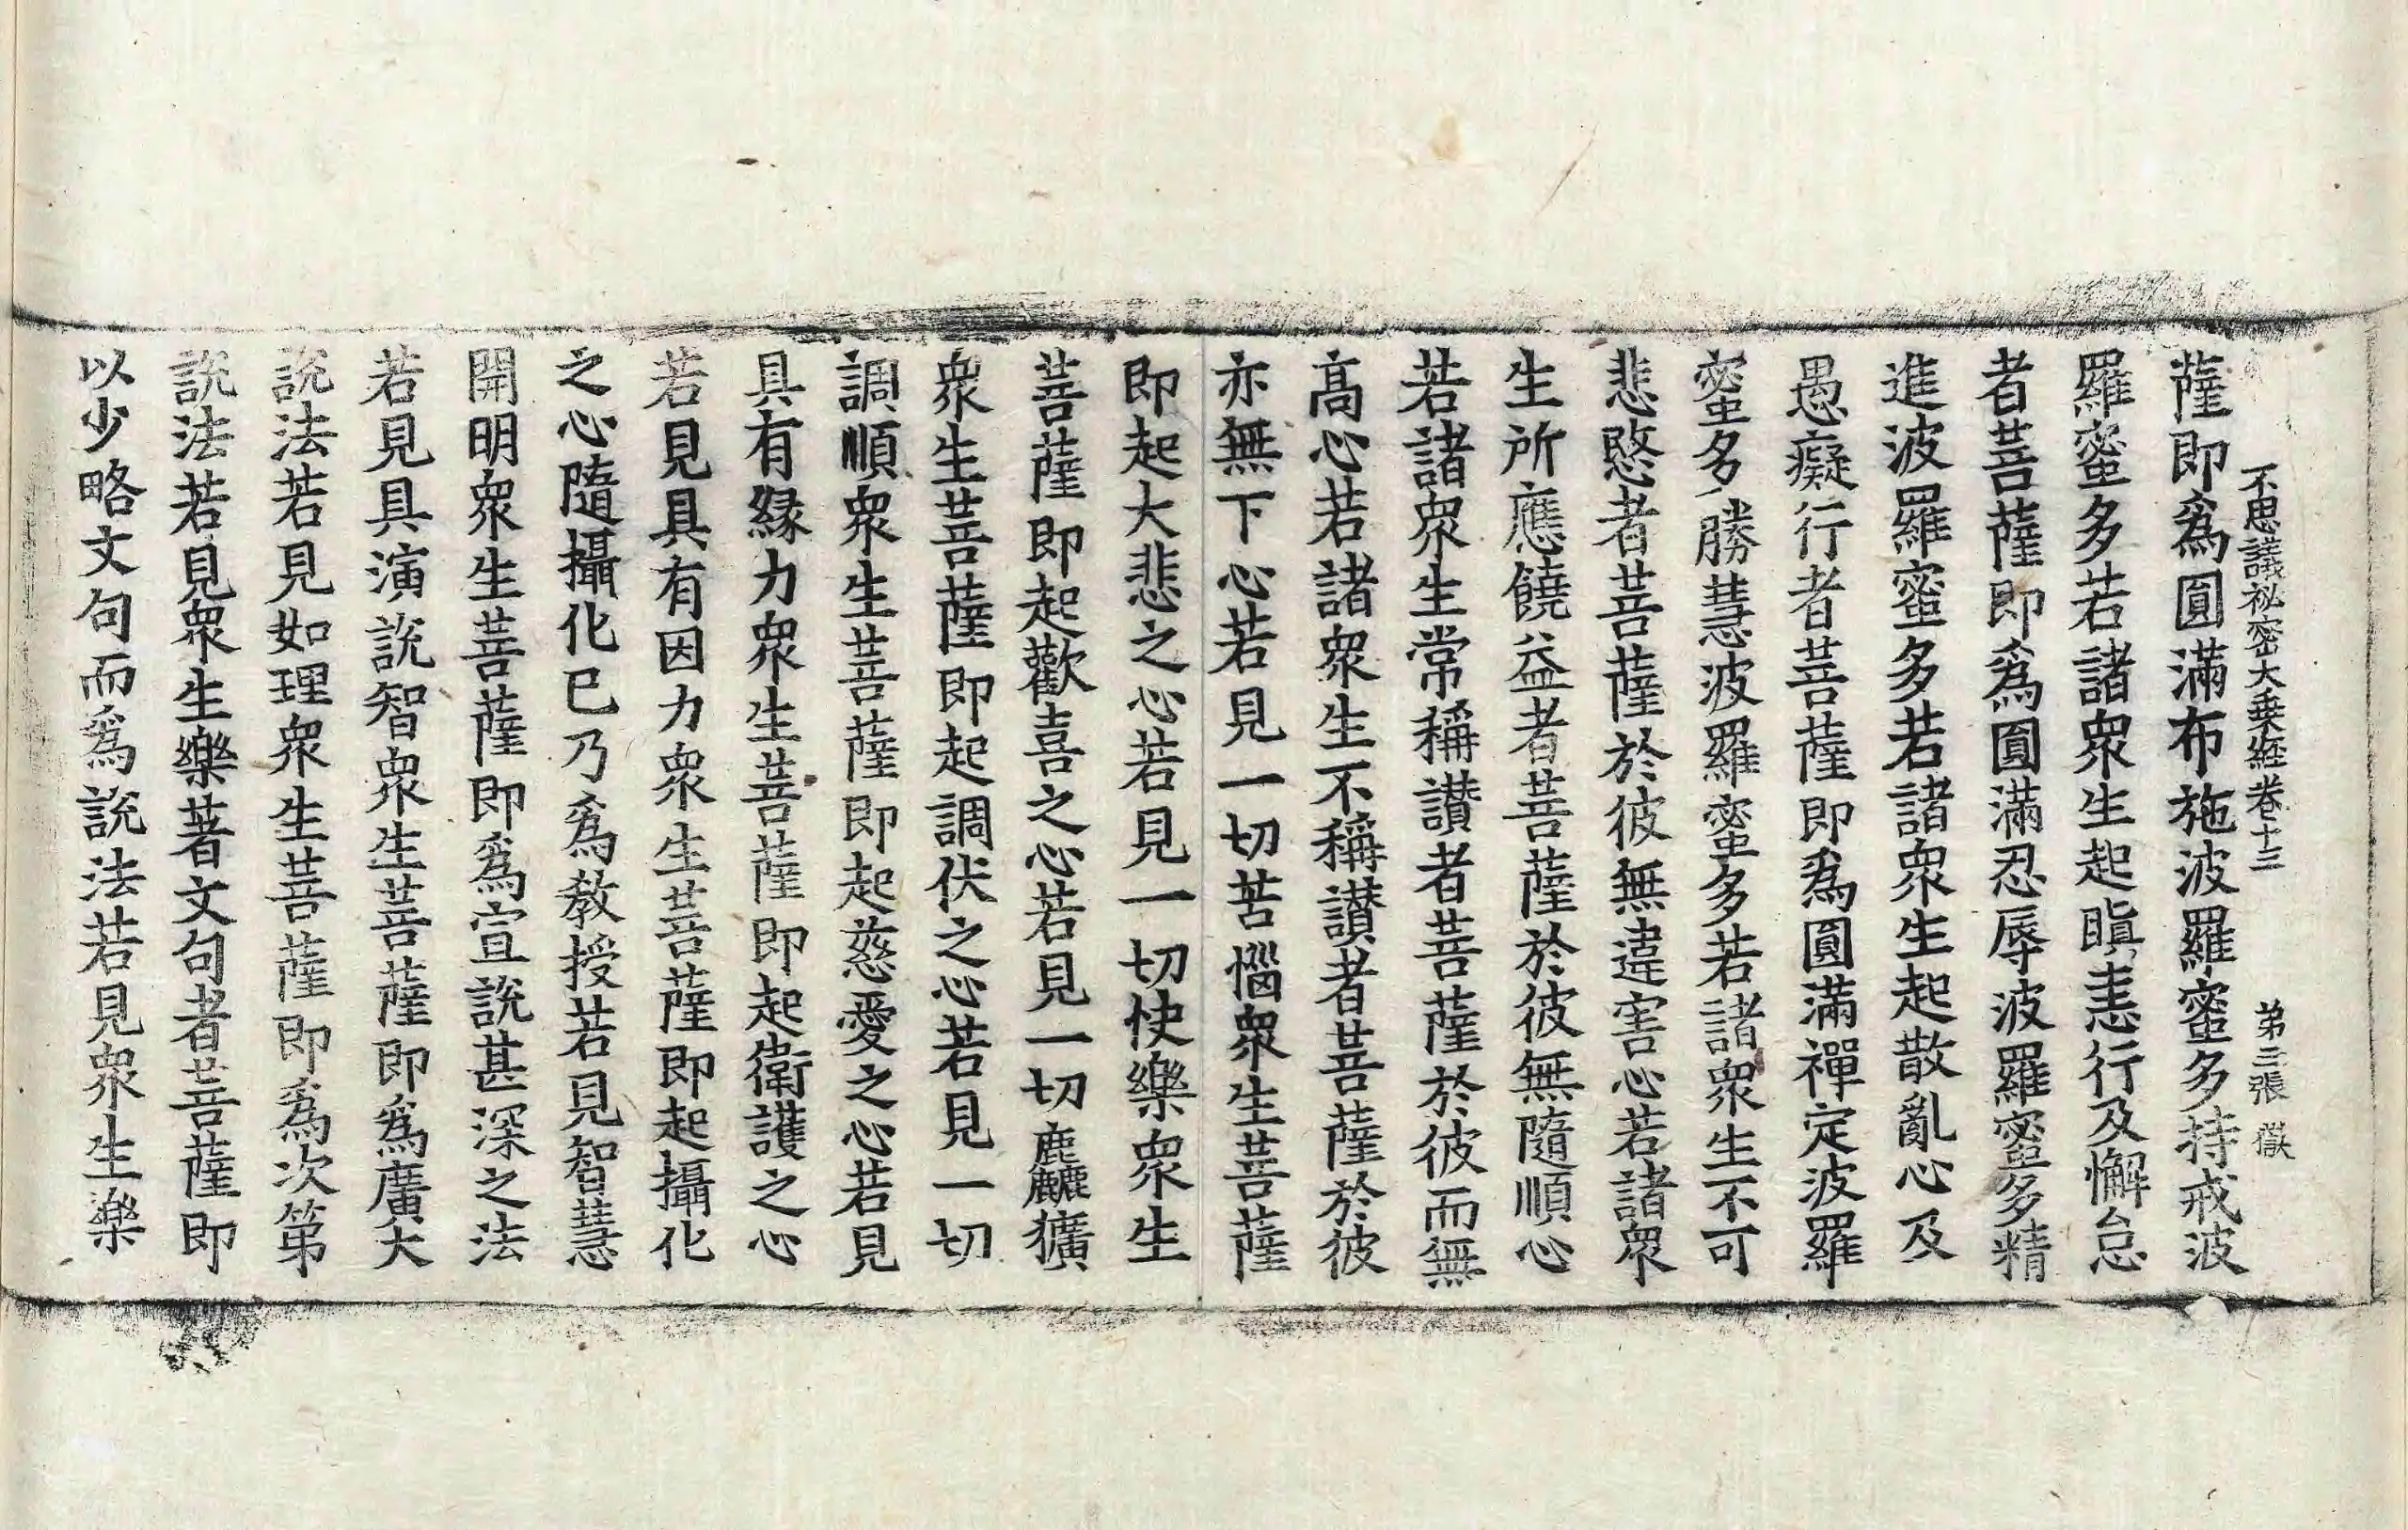 不思議祕密大乗経卷十三 第三張 獄
薩即爲圓滿布施波羅蜜多持戒波
羅蜜多若諸衆生起瞋恚行及懈怠
者菩薩即爲圓滿忍辱波羅蜜多精
進波羅蜜多若諸衆生起散亂心及
愚癡行者菩薩即爲圓滿禪定波羅
蜜多勝慧波羅蜜多若諸衆生不可
悲愍者菩薩於彼無違害心若諸衆
生所應饒益者菩薩於彼無隨順心
若諸衆生常稱讃者菩薩於彼而無
高心若諸衆生不稱讃者菩薩於彼
亦無下心若見一切苦惱衆生菩薩
即起大悲之心若見一切快樂衆生
菩薩即起歡喜之心若見一切麤獷
衆生菩薩即起調伏之心若見一切
調順衆生菩薩即起慈愛之心若見
具有緣力衆生菩薩即起衛護之心
若見具有因力衆生菩薩即起攝化
之心隨攝化已乃爲教授若見智慧
開明衆生菩薩即爲宣說甚深之法
若見具演說智衆生菩薩即爲廣大
說法若見如理衆生菩薩即爲次第
說法若見衆生樂著文句者菩薩即
以少略文句而爲說法若見衆生樂